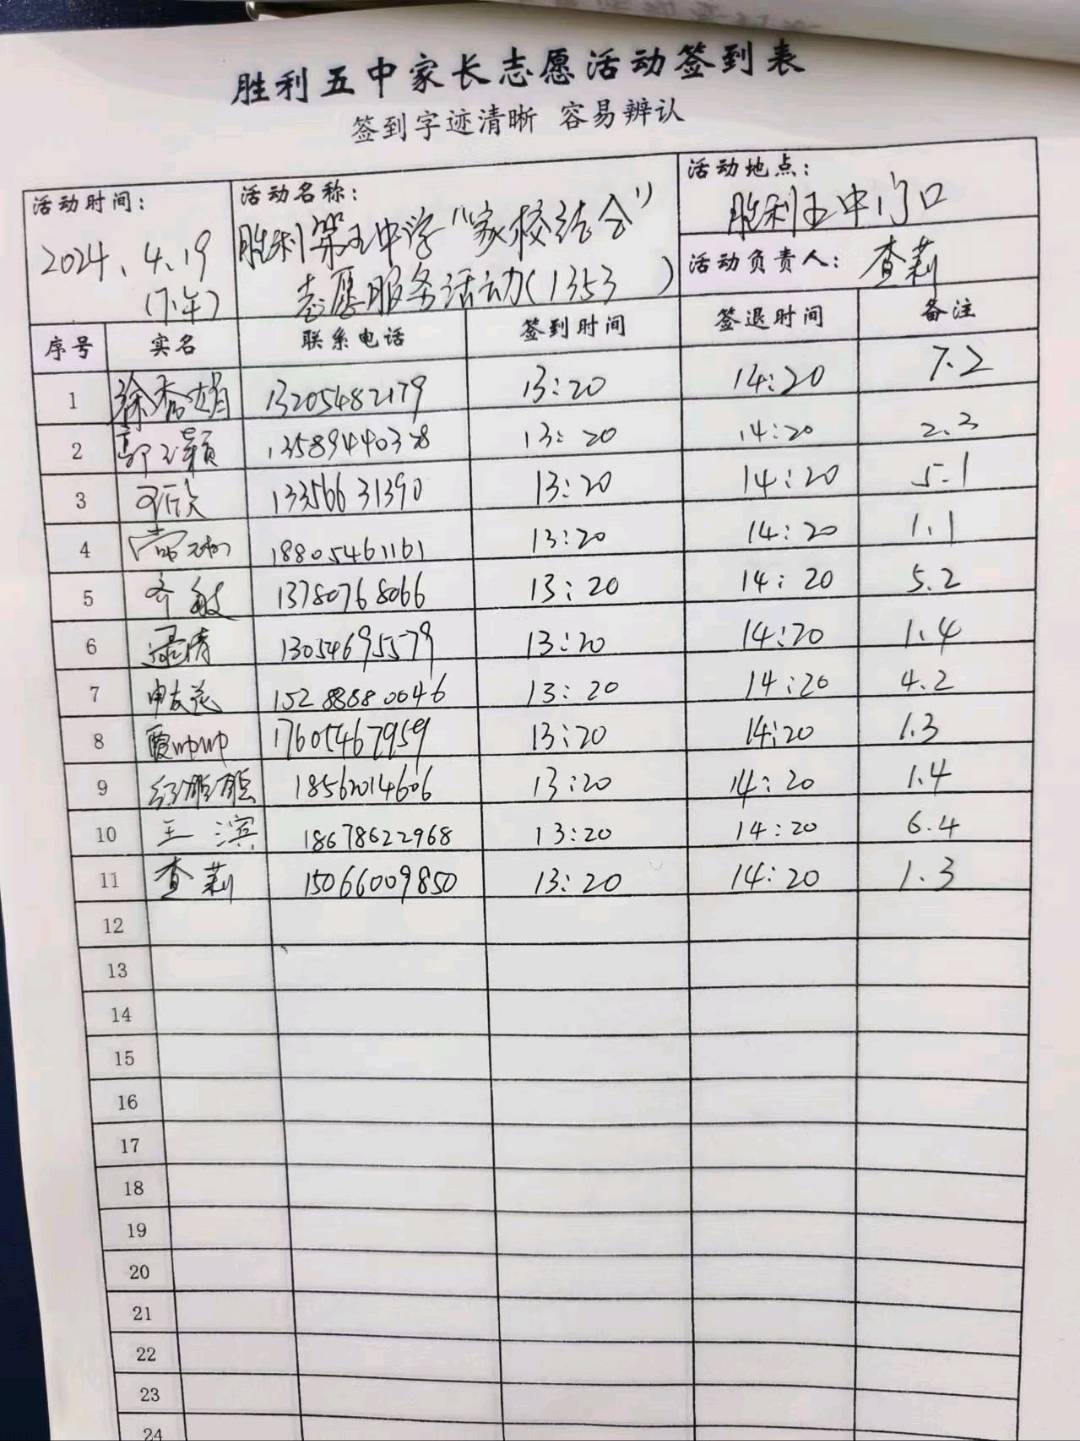 胜利五中家长志愿活动签到表
签到字迹清晰 容易辨认
活动时间:
2024.4.19
(下午)
活动名称:
胜利第五中学“家校结合”
志愿服务活动(1353 )
活动地点:
胜利五中门口
活动负责人: 查莉
序号 实名 联系电话 签到时间 签退时间 备注
1 徐秀娟 13205482179 13:20 14:20 7.2
2 13589440378 13:20 14:20 2.3
3 13356631390 13:20 14:20 5.1
4 18805461161 13:20 14:20 1.1
5 齐敏 13780768066 13:20 14:20 5.2
6 13054695579 13:20 14:20 1.4
7 申友花 15288880046 13:20 14:20 4.2
8 17605467959 13:20 14:20 1.3
9 18562014606 13:20 14:20 1.4
10 王滨 18678622968 13:20 14:20 6.4
11 查莉 15066009850 13:20 14:20 1.3
12
13
14
15
16
17
18
19
20
21
22
23
24